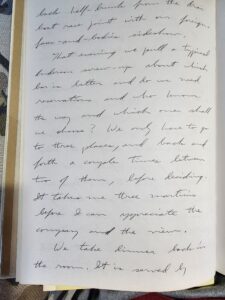 back half-bunch from the dra
boat race point with our foreign
faces-and-bodies sideshow.
That evening we pull a typical
bedroom screw-up about which
bar is better and do we need
reservations and who knows
the way and which ones shall
we choose? We only have to go
to three places, and back and
forth a couple times between
two of them, before deciding.
It takes me three martinis
before I can appreciate the
company and the view.
We take dinner back in
the room. It is served by